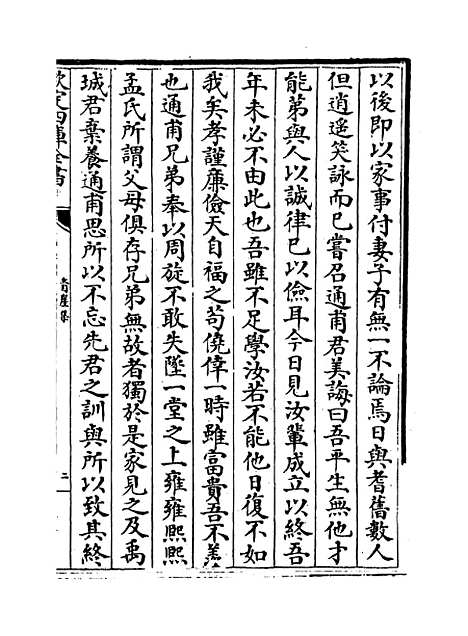 以後即以家事付妻子有無一不論焉日與耆舊數人
但逍遥笑詠而已嘗召通甫君美誨曰吾平生無他才
能第與人以誠律已以儉耳今日見汝軰成立以終吾
年未必不由此也吾雖不足學汝若不能他日復不如
我矣孝謹廉儉天自福之茍僥倖一時雖富貴吾不羡
也通甫兄弟奉以周旋不敢失墜一堂之上雍雍熙熙
孟氏所謂父母俱存兄弟無故者獨於是家見之及禹
城君棄養通甫思所以不忘先君之訓與所以致其終
欽定四庫全書
青崖集
二